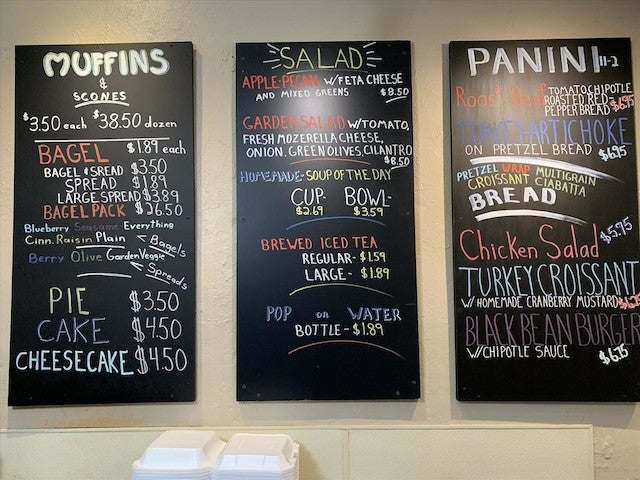 MUFFINS
&
SCONES
$3.50 each $38.50 dozen
BAGEL $1.89 each
BAGEL & SREAD $3.50
SPREAD $1.89
LARGE SPREAD $3.89
BAGEL PACK $26.50
Blueberry Seasame Everything
Cinn. Raisin Plain < Bagels
Berry Olive Garden Veggie
< Spreads
PIE $3.50
CAKE $4.50
CHEESECAKE $4.50
SALAD
APPLE-PECAN W/FETA CHEESE
AND MIXED GREENS $8.50
GARDEN SALAD W/TOMATO,
FRESH MOZERELLA CHEESE,
ONION, GREEN OLIVES, CILANTRO
$8.50
HOMEMADE-SOUP OF THE DAY
CUP- BOWL-
$2.69 $3.59
BREWED ICED TEA
REGULAR-$1.59
LARGE-$1.89
POP or WATER
BOTTLE-$1.89
PANINI 11-2
Roast Beef TOMATO CHIPOTLE
ROASTED RED
PEPPER BREAD $6.95
TURKEY-ARTICHOKE
ON PRETZEL BREAD $6.95
PRETZEL WRAP MULTIGRAIN
CROISSANT CIABATTA
BREAD
$5.95
Chicken Salad
TURKEY CROISSANT
W/ HOMEMADE CRANBERRY MUSTARD
BLACK BEAN BURGER
W/CHIPOTLE SAUCE $6.75